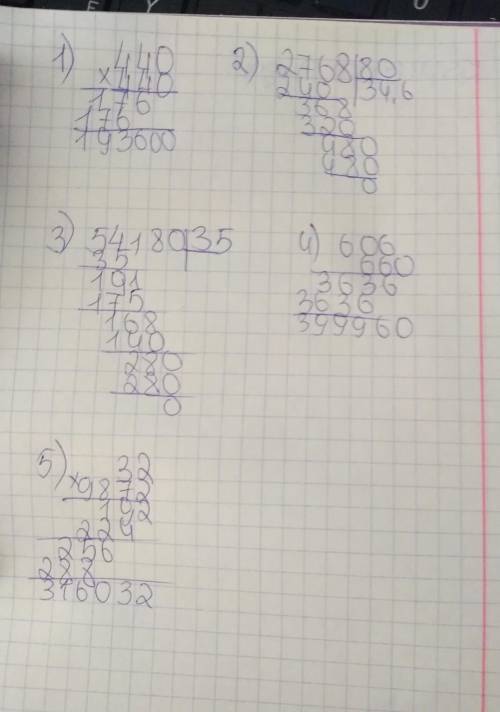 1) 440
× 440
176
176
193600
2) 2768 | 80
240 | 34,6
368
320
480
480
0
3) 54180 | 35
35
191
175
168
140
280
280
0
4) 606
660
3636
3636
399960
5) 32
× 9872
192
224
256
288
316032